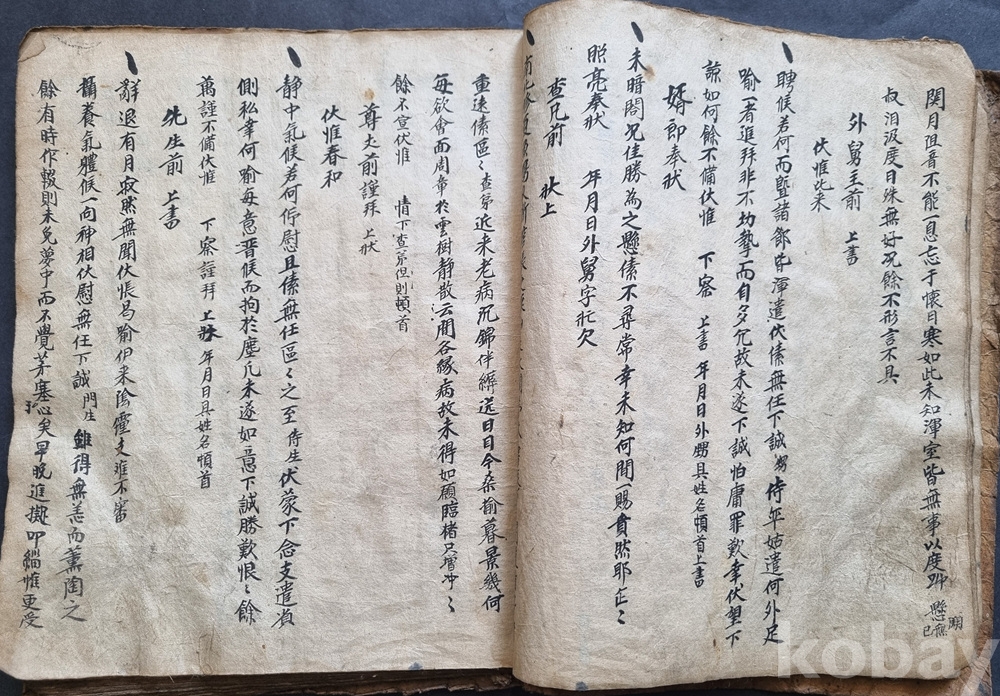 閱月阻音不能一息忘于懷日寒如此未知渾室皆無事以度耶懸無已
叔泪汲度日殊無好况餘不形言不具
外舅主前 上書
伏惟比來
聘候若何而曁諸節皆渾遣伏傃無任下誠甥侍率姑遣何外足
喻者進拜非不切摯而自多冗故未遂下誠怕庸罪歎幸伏望下
諒如何餘不備伏惟 下察 上書 年月日外甥具姓名頓首上書
婿郎奉狀
未暗閤况佳勝為之懸傃不尋常幸未知何間一賜賁然耶企〻
照亮奉狀 年月日外舅字壯欠
查兄前 狀上
重逺傃區〻查弟近來老病沉錦伴縟送日日今桑揄暮景幾何
每欲會面周章於雲樹静散云間各緣病故未得如願臨楮只增冲〻
餘不宣伏惟 情下查弟但則頓首
尊丈前謹拜 上狀
伏惟春和
静中氣候若何仰慰且傃無任區〻之至侍生伏蒙下念支遣省
側私幸何喻每意晋候而拘於塵冗未遂如意下誠勝歎恨〻餘
萬謹不備伏惟 下察謹拜 上狀 年月日具姓名頓首
先生前 上書
辭退有月寂然無聞伏悵曷喻伊來陰霾支離不審
攝養氣體候一向神相伏慰無任下誠門生雖得無恙而薰陶之
餘有時作輟則未免夢中而不覺茅塞於心矣早晩進擬叩緇惟更受
kobay